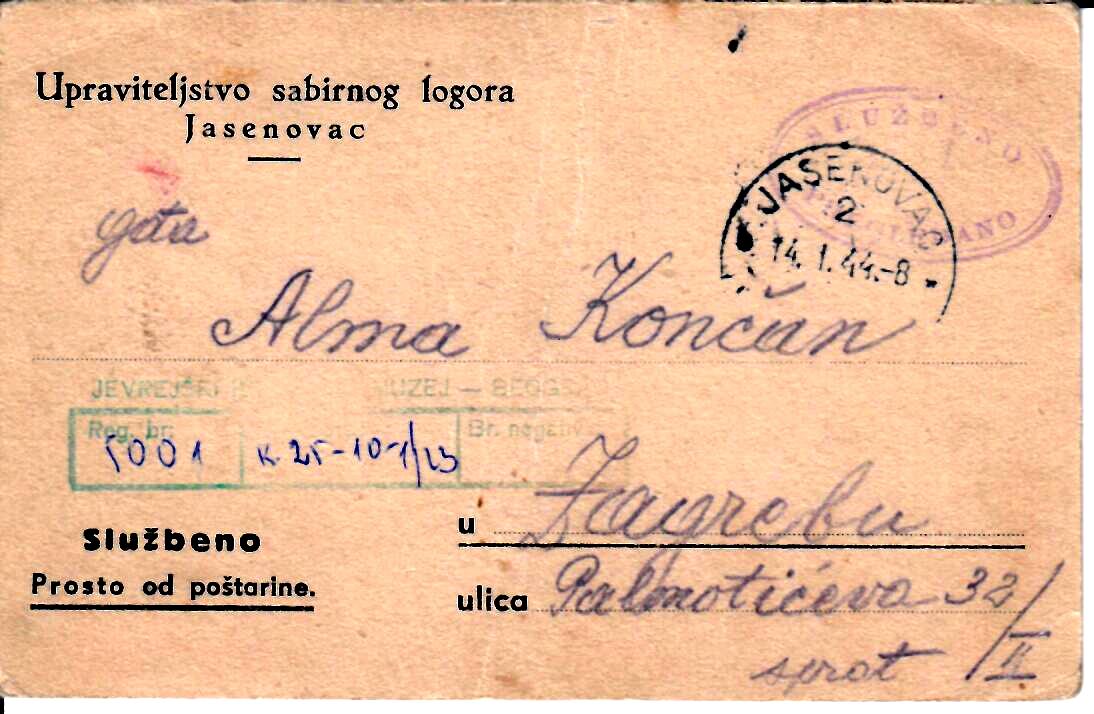 Upraviteljstvo sabirnog logora
Jasenovac
SLUŽBENO
JASENOVAC
2
14.1.44.-8
gđa
Alma Končan
JEVREJSKI MUZEJ — BEOGR
Reg. br.
Br. negativ
5001
K. 25-10-1/23
Službeno
Prosto od poštarine.
u Zagrebu
ulica Palmotićeva 32/II
sprat